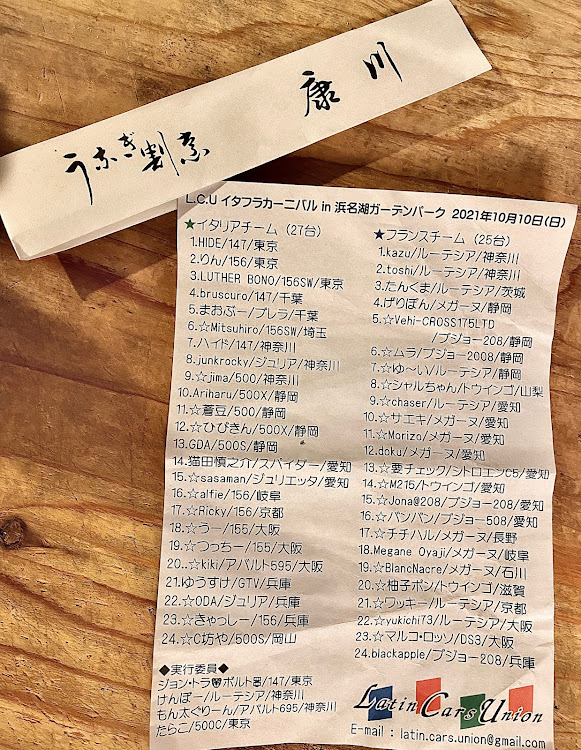 うなぎ割烹 康川
L.C.U イタフラカーニバル in 浜名湖ガーデンパーク 2021年10月10日(日)
★イタリアチーム (27台)
1.HIDE/147/東京
2.りん/156/東京
3.LUTHER BONO/156SW/東京
4.bruscuro/147/千葉
5.まおぶー/ブレラ/千葉
6.☆Mitsuhiro/156SW/埼玉
7.ハイド/147/神奈川
8.junkrocky/ジュリア/神奈川
9.☆jima/500/神奈川
10.Ariharu/500X/静岡
11.☆蒼豆/500/静岡
12.☆ひびきん/500X/静岡
13.GDA/500S/静岡
14.猫田慎之介/スパイダー/愛知
15.☆sasaman/ジュリエッタ/愛知
16.☆alfie/156/岐阜
17.☆Ricky/156/京都
18.☆うー/155/大阪
19.☆つっちー/155/大阪
20..☆kiki/アバルト595/大阪
21.ゆうすけ/GTV/兵庫
22.☆ODA/ジュリア/兵庫
23.☆きゃっしー/156/兵庫
24.☆C坊や/500S/岡山
◆実行委員◆
ジョン・トラ🐭ボルト🍔/147/東京
けんぼー/ルーテシア/神奈川
もん太ぐりーん/アバルト695/神奈川
たらこ/500C/東京
★フランスチーム (25台)
1.kazu/ルーテシア/神奈川
2.toshi/ルーテシア/神奈川
3.たんくま/ルーテシア/茨城
4.げりぽん/メガーヌ/静岡
5.☆Vehi-CROSS175LTD
/プジョー208/静岡
6.☆ムラ/プジョー2008/静岡
7.☆ゆ〜い/ルーテシア/静岡
8.☆シャルちゃん/トウインゴ/山梨
9.☆chaser/ルーテシア/愛知
10.☆サエキ/メガーヌ/愛知
11.☆Morizo/メガーヌ/愛知
12.doku/メガーヌ/愛知
13.☆要チェック/シトロエンC5/愛知
14.☆M215/トウインゴ/愛知
15.☆Jona@208/プジョー208/愛知
16.☆パンパン/プジョー508/愛知
17.☆チチハル/メガーヌ/長野
18.Megane Oyaji/メガーヌ/岐阜
19.☆BlancNacre/メガーヌ/石川
20.☆柚子ポン/トウインゴ/滋賀
21.☆ワッキー/ルーテシア/京都
22.☆yukichi73/ルーテシア/大阪
23.☆マルコ・ロッソ/DS3/大阪
24.blackapple/プジョー208/兵庫
Latin Cars Union
E-mail : latin.cars.union@gmail.com